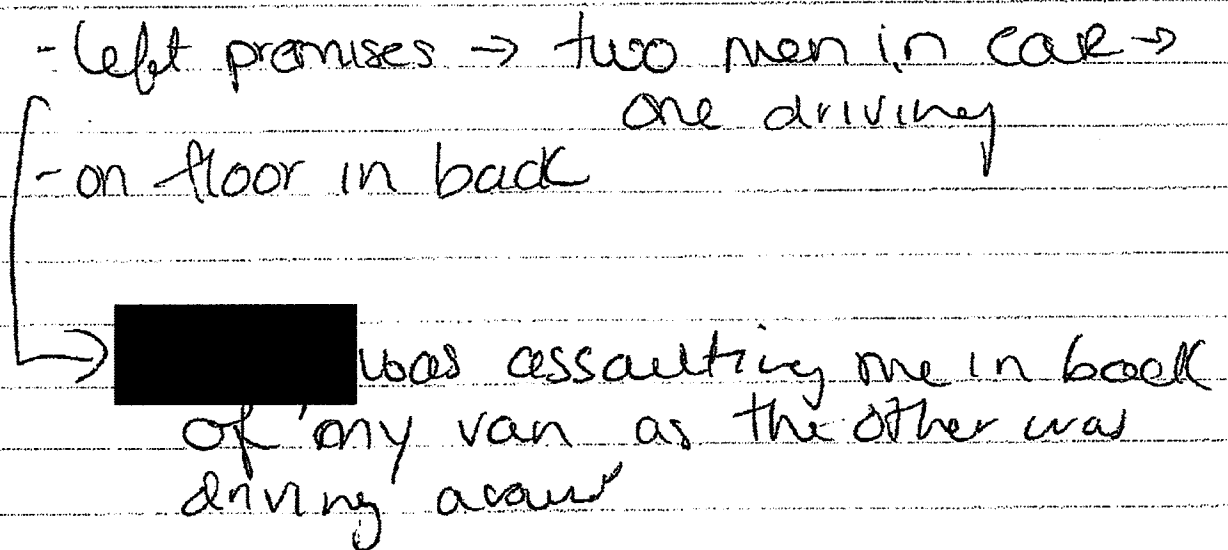 - left premises → two men in car →
one driving
- on floor in back
was assaulting me in back
of my van as the other was
driving